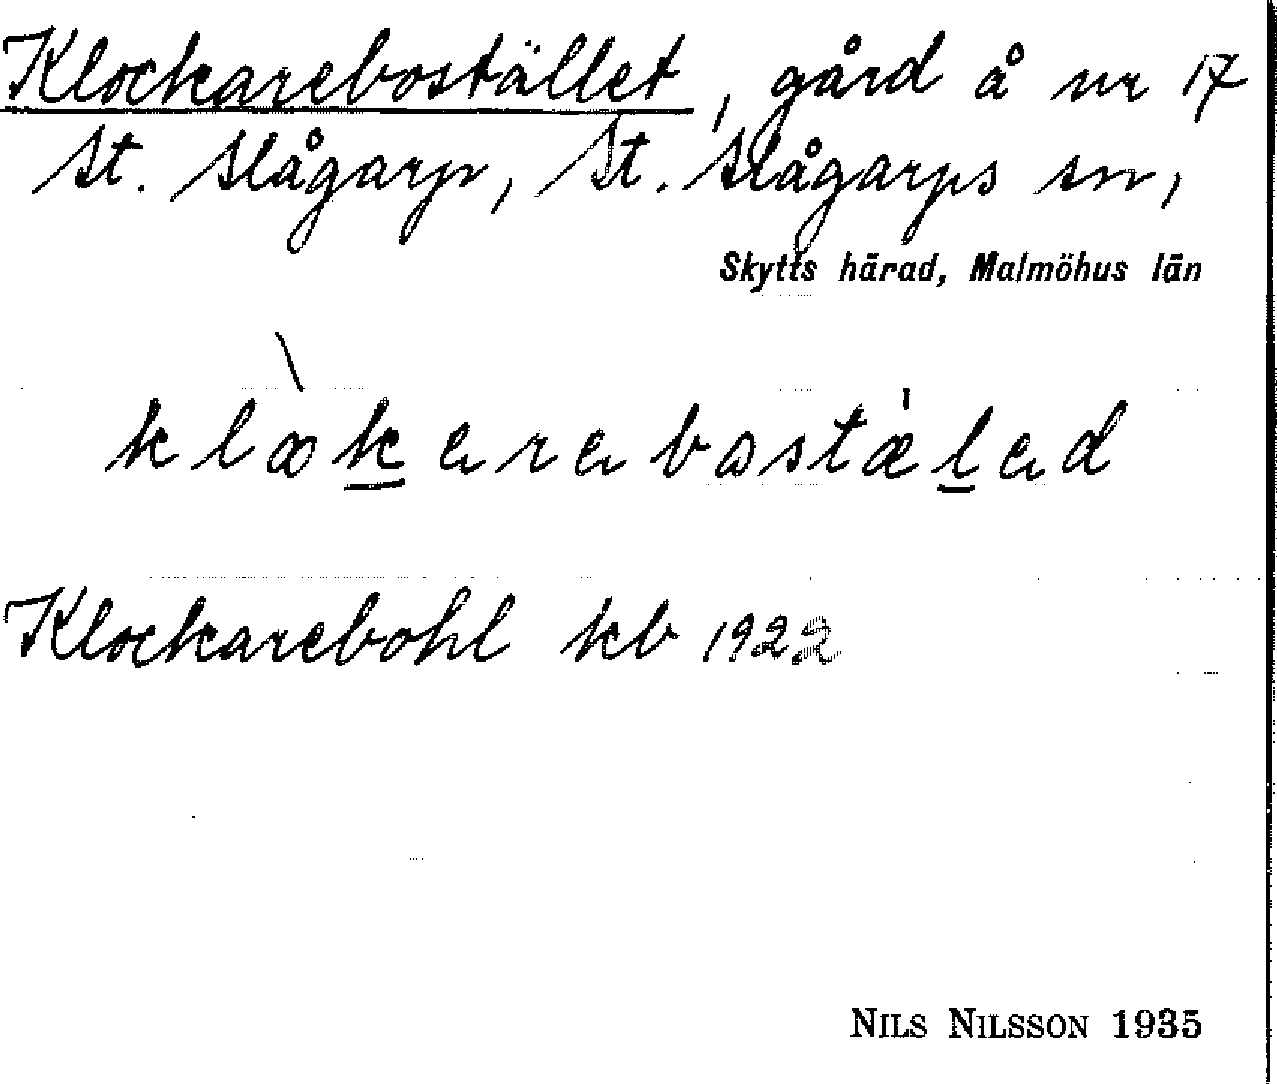 Klockarebostället, gård å nr 17
St. Slågarp, St. Slågarps sn,
Skytts härad, Malmöhus län
Klockarebohl kb 1922
NILS NILSSON 1935